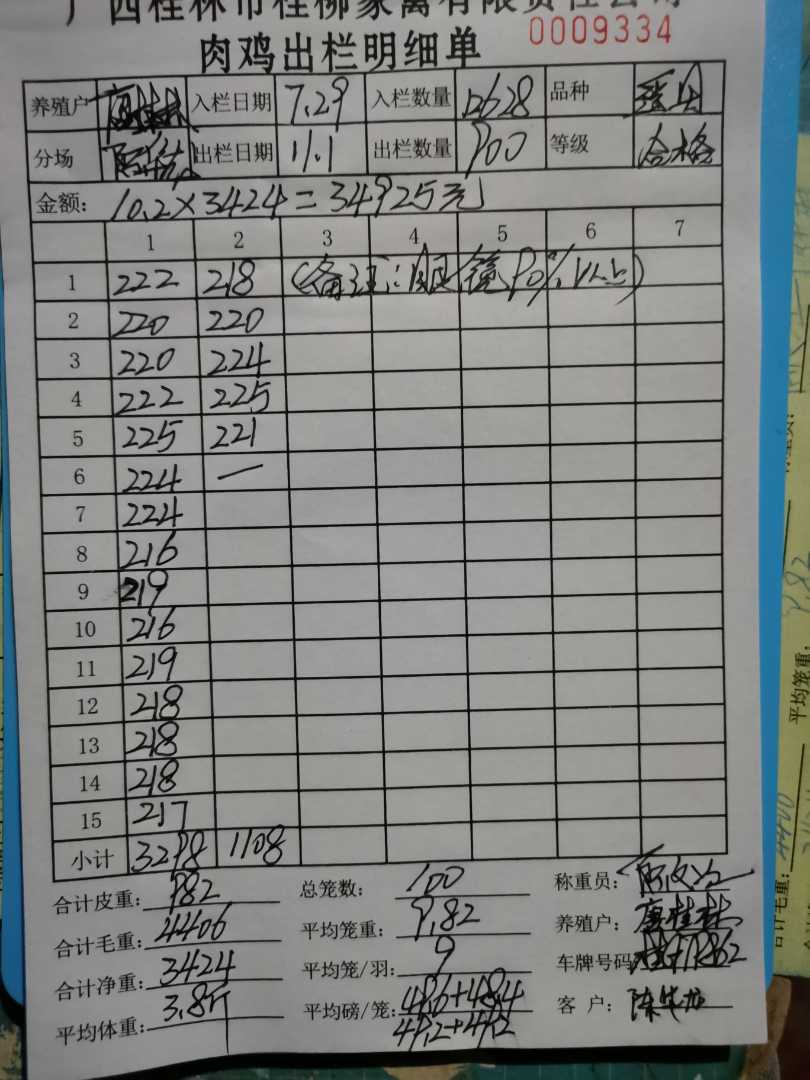 广西桂林市桂柳家禽有限责任公司
0009334
肉鸡出栏明细单
养殖户 唐桂林 入栏日期 7.29 入栏数量 12628 品种
分场 出栏日期 11.1 出栏数量 900 等级 合格
金额: 10.2×3424=34925元
1 2 3 4 5 6 7
1 222 218 (备注: 眼镜90%以上)
2 220 220
3 220 224
4 222 225
5 225 221
6 224 —
7 224
8 216
9 219
10 216
11 219
12 218
13 218
14 218
15 217
小计 3298 1108
合计皮重: 982 总笼数: 100 称重员:
合计毛重: 4406 平均笼重: 9.82 养殖户: 唐桂林
合计净重: 3424 平均笼/羽: 9 车牌号码:
平均体重: 3.8斤 平均磅/笼: 49.6+48.4 客户: 陈华龙
49.2+49.2